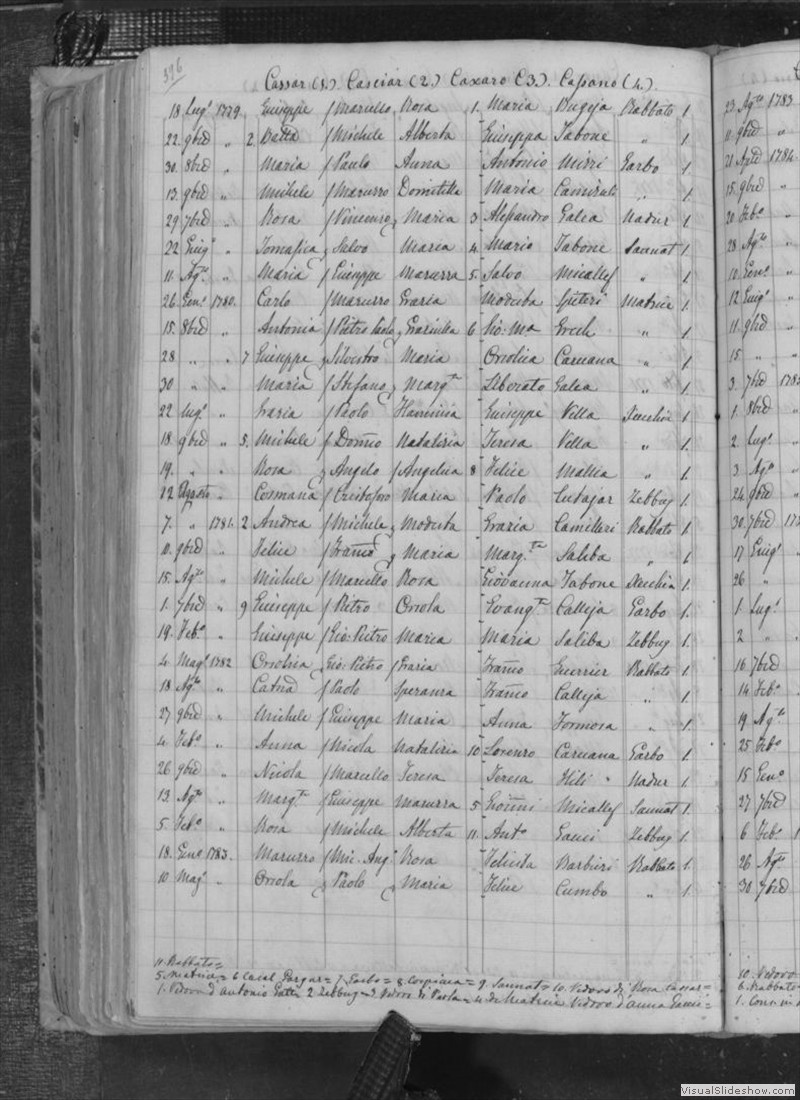 396
Cassar (1.) Casciar (2.) Caxaro (3.) Cassano (4.)
18 Lugo 1779. Giuseppe Marcello Rosa 1. Maria Bugeja Rabbato 1.
22. 9bre " 2. Batta Michele Alberta Giuseppa Tabone " 1.
30. 8bre " Maria Paulo Anna Antonio Mizzi Garbo 1.
13. 9bre " Michele Maruzzo Domitilla Maria Camiruti " 1.
29 7bre " Rosa Vincenzo Maria 3 Alessandro Galea Nadur 1.
22 Giugo " Tomasica Salvo Maria 4. Mario Tabone Sannat 1.
11. Agto " Maria Giuseppe Maruzza 5. Salvo Micallef " 1.
26. Geno 1780. Carlo Maruzzo Grazia Modesta Matrice 1.
15. 8bre " Antonia Pietro Paolo Graziulla 6 Gio: Ma Grech " 1.
28 " " 7 Giuseppe Silvestro Maria Orsolica Caruana " 1.
30 " " Maria Stefano Margta Liberato Galea " 1.
22 Lugo " Grazia Paolo Flaminia Giuseppe Vella Xeuchia 1.
18 9bre " 5. Michele Domco Natalizia Teresa Vella " 1.
19. " " Rosa Angelo Angelica 8 Felice Mallia " 1.
22 Agosto " Cosmana Cristofaro Maria Paolo Cutajar Zebbug 1.
7. " 1781. 2 Andrea Michele Modesta Grazia Camilleri Rabbato 1.
10. 9bre " Felice Franco Maria Margta Saliba " 1
15. Agto " Michele Marcello Rosa Giovanna Tabone Xeuchia 1.
1. 7bre " 9 Giuseppe Pietro Orsola Evangta Calleja Garbo 1.
19. Febo " Giuseppe Gio: Pietro Maria Maria Saliba Zebbug 1.
4. Mago 1782 Orsolica Gio: Pietro Grazia Franco Guerrier Rabbato 1.
18 Agto " Catna Paolo Speranza Franco Calleja " 1.
27 9bre " Michele Giuseppe Maria Anna Formosa " 1.
4. Febo " Anna Nicola Natalizia 10 Lorenzo Caruana Garbo 1.
26 9bre " Nicola Marcello Teresa Teresa Hili Nadur 1.
13. Agto " Margta Giuseppe Maruzza 5 Gionni Micallef Sannat 1.
5. Febo " Rosa Michele Alberta 11. Anto Gauci Zebbug 1.
18. Geno 1783. Maruzzo Mic. Ango Rosa Felicita Barbieri Rabbato 1.
10 Mago " Orsola Paolo Maria Felice Cumbo " 1.
11. Rabbato =
5. Matrice = 6 Casal Gargar = 7. Garbo = 8. Cospicua = 9. Sannat = 10. Vedovo di Rosa Cassar =
1. Vedova d'Antonio 2 Zebbug = 3 Vedovo di Paola = 4 di Matrice Vedovo d'Anna Gauci =
23 Agto 1783
11. 9bre "
21 Aple 1784
15. 9bre "
20 Febo "
28 Agto "
12 Geno "
12 Giugo "
11. 9bre "
15 " "
3. 7bre
1. 8bre "
2 Lugo "
3 Agto "
24 9bre "
30. 7bre
17 Giugo
26 " "
1. Lugo
2 "
16 7bre
14 Febo
19 Agto
25 Febo
15 Geno
27 7bre
6 Febo
26 Agto
30 7bre
10. Vedovo
6. Rabbato
VisualSlideshow.com